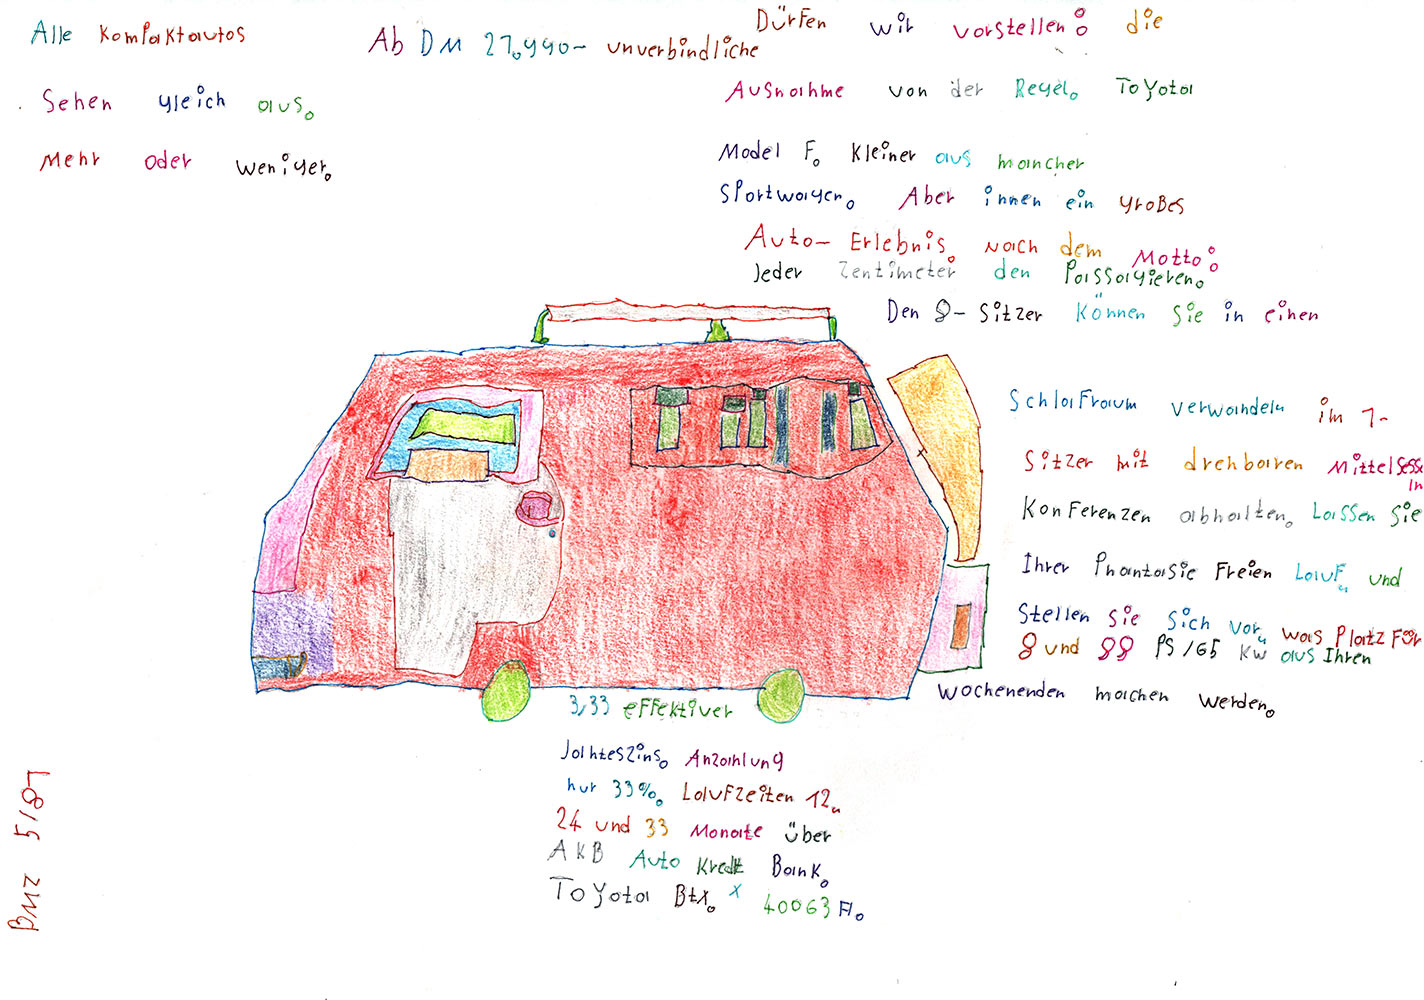 Alle Kompaktautos
Sehen gleich aus.
Mehr oder weniger.
Ab DM 27.990- unverbindliche
Dürfen wir vorstellen: die
Ausnahme von der Regel. Toyota
Model F. Kleiner aus mancher
Sportwagen. Aber innen ein großes
Auto- Erlebnis nach dem Motto:
Jeder Zentimeter den Passagieren.
Den 8- Sitzer können Sie in einen
Schlafraum verwandeln im 7-
Sitzer mit drehbaren Mittelsesse
ln
Konferenzen abhalten. Lassen Sie
Ihrer Phantasie Freien Lauf, und
Stellen Sie Sich vor, was Platz Für
8 und 88 PS/65 KW aus Ihren
Wochenenden machen werden.
3,33 effektiver
Jahreszins. Anzahlung
nur 33%. Laufzeiten 12,
24 und 33 Monate über
AKB Auto Kredit Bank.
Toyota Btx. x 40063 #.
BMZ 5/87